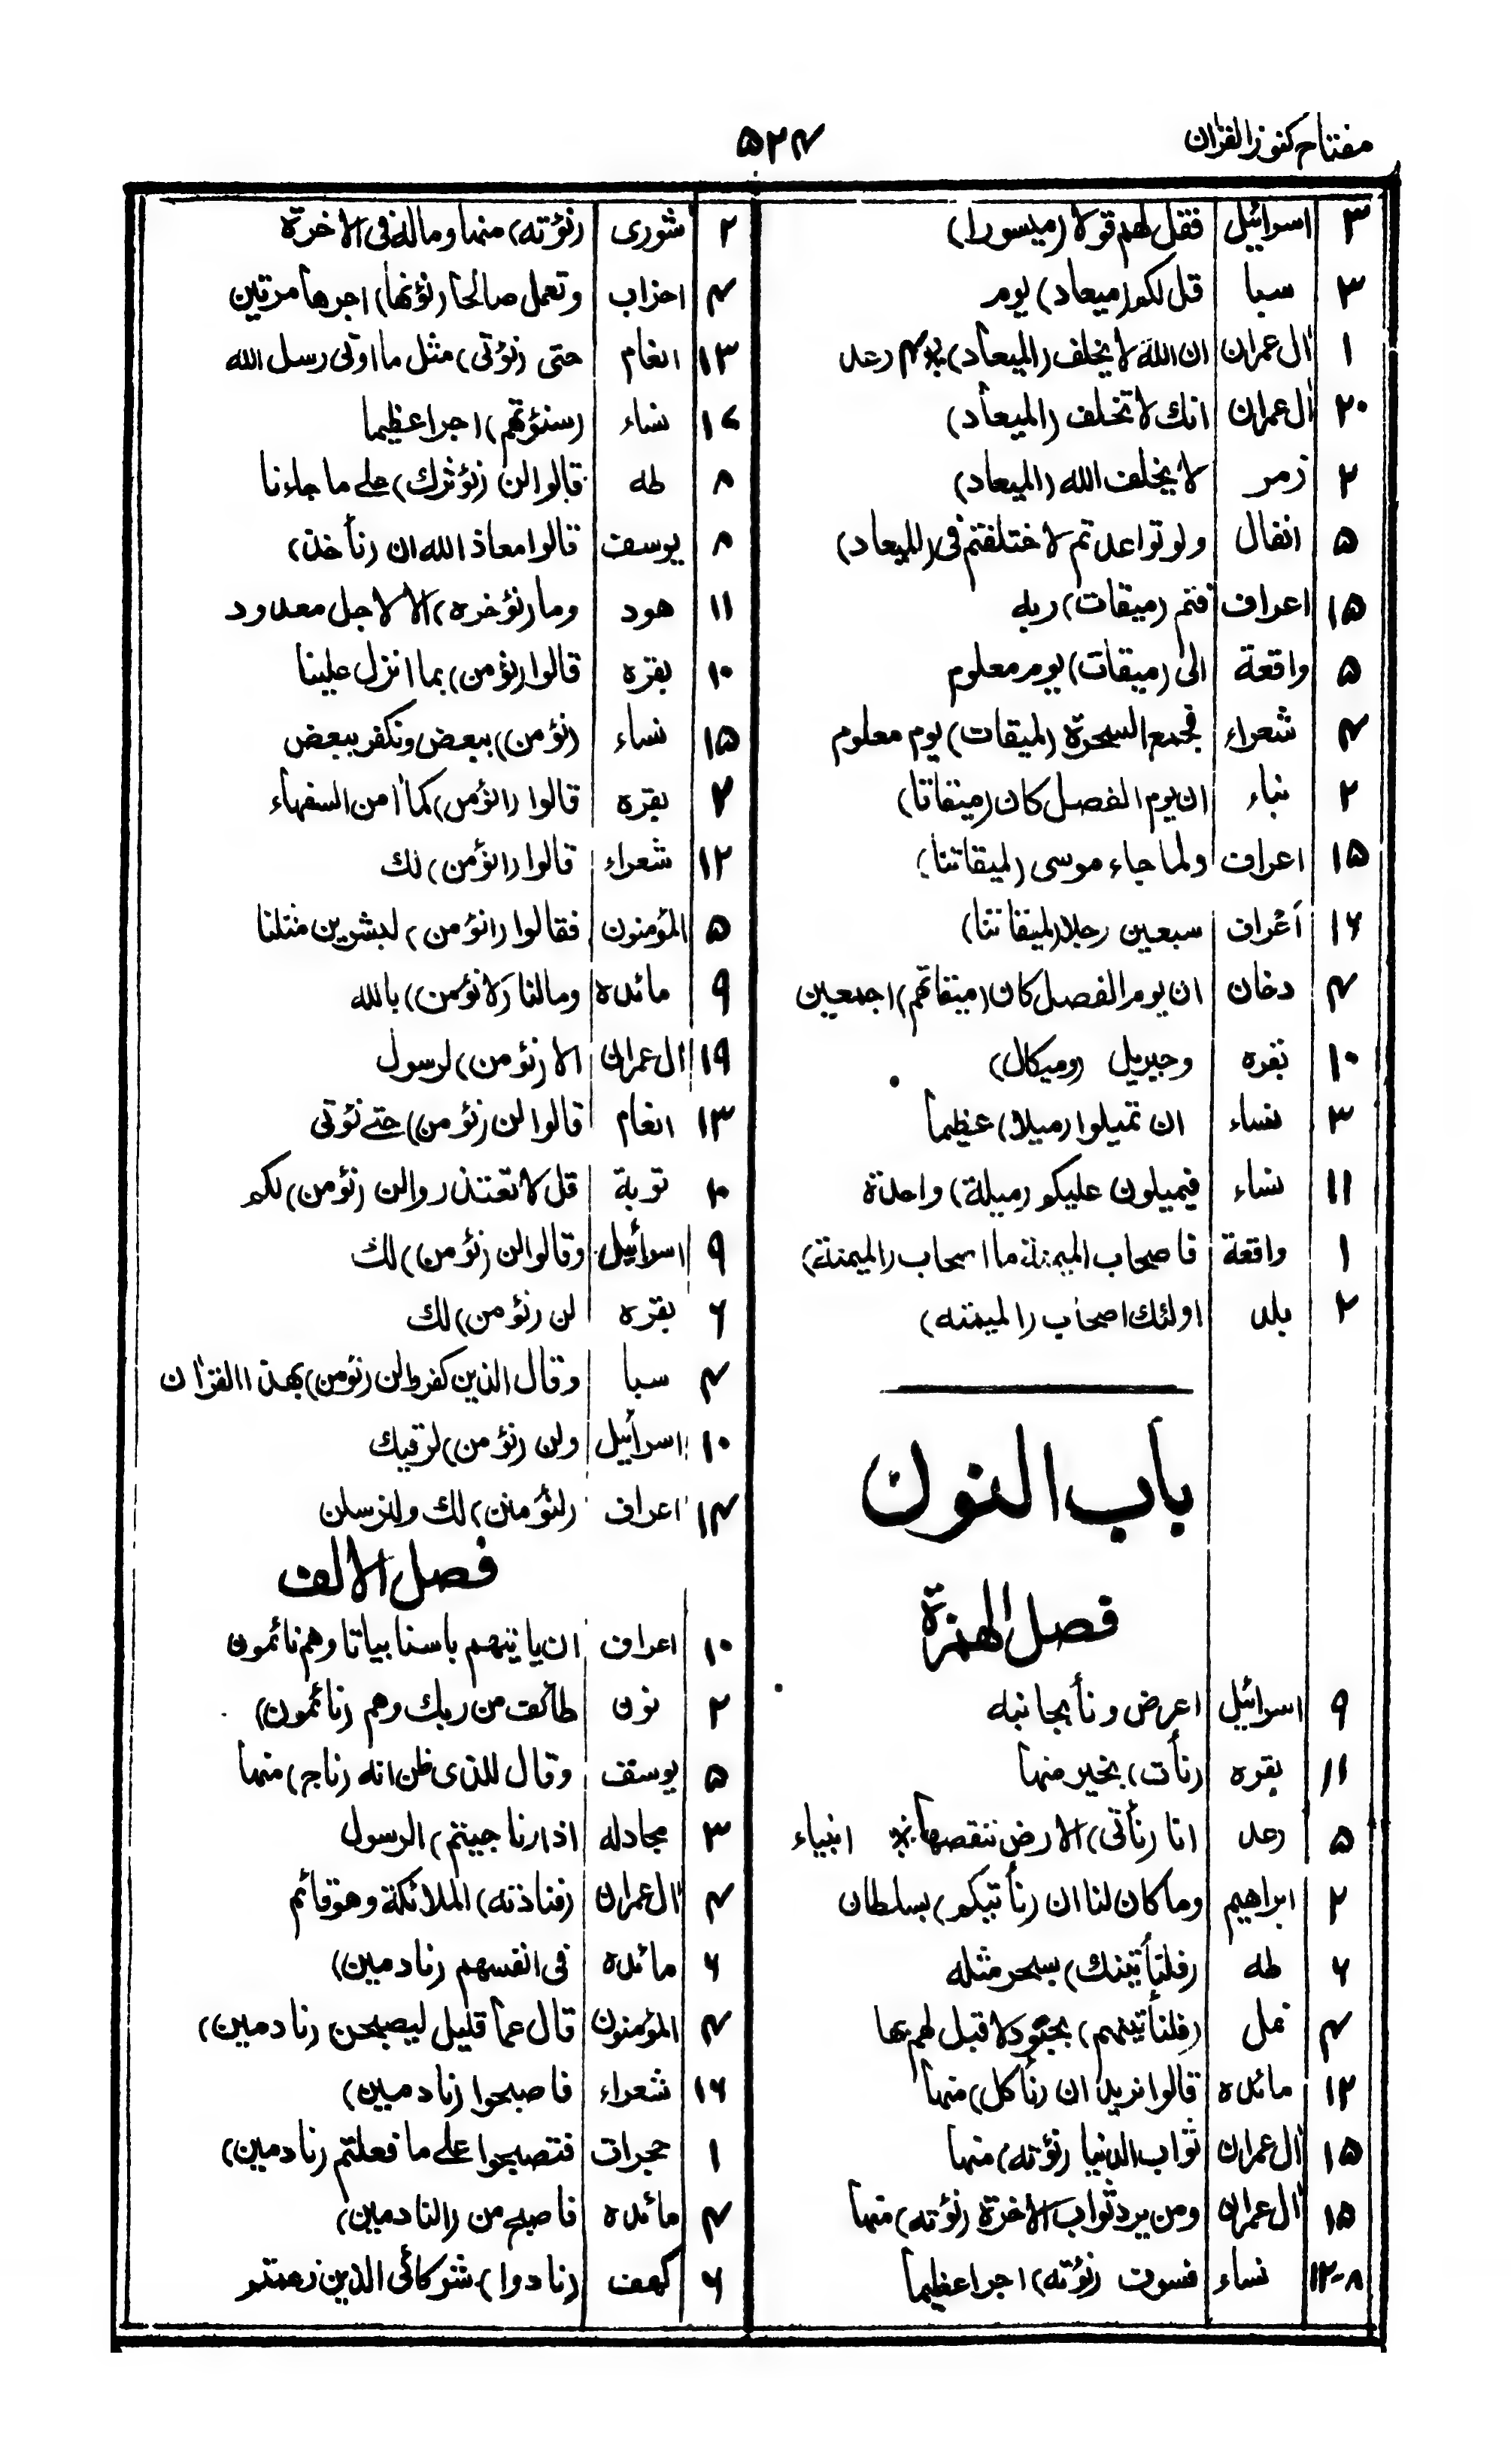 مفتاح كنوز القرآن
۵۲۴
۳ اسرائیل فقل لهم قولا (میسورا)
۳ سبا قل لكم (میعاد) یوم
۱ اٰل عمران ان الله لا یخلف (المیعاد) ※ ۴ رعد
۲۰ اٰل عمران انك لا تخلف (المیعاد)
۲ زمر لا یخلف الله (المیعاد)
۵ انفال ولو تواعدتم لاختلفتم فی (المیعاد)
۱۵ اعراف فتم (میقات) ربه
۵ واقعة الی (میقات) یوم معلوم
۴ شعراء فجمع السحرة (لمیقات) یوم معلوم
۲ نباء ان یوم الفصل كان (میقاتا)
۱۵ اعراف ولما جاء موسی (لمیقاتنا)
۱۶ اعراف سبعین رجلا (لمیقاتنا)
۴ دخان ان یوم الفصل كان (میقاتهم) اجمعین
۱۰ بقره وجبریل (ومیكال)
۳ نساء ان تمیلوا (میلا) عظیما
۱۱ نساء فیمیلون علیكم (میلة) واحدة
۱ واقعة فاصحاب المیمنة ما اصحاب (المیمنة)
۲ بلد اولئك اصحاب (المیمنه)
باب النون
فصل الهمزة
۹ اسرائیل اعرض ونأ بجانبه
۱۱ بقره (نأت) بخیر منها
۵ رعد انا (نأتی) الارض ننقصها ※ انبیاء
۲ ابراهیم وما كان لنا ان (نأتیكم) بسلطان
۶ طه (فلنأتینك) بسحر مثله
۴ نمل (فلنأتینهم) بجنود لا قبل لهم بها
۱۲ مائده قالوا نرید ان (نأكل) منها
۱۵ اٰل عمران ثواب الدنیا (نؤته) منها
۱۵ اٰل عمران ومن یرد ثواب الاٰخرة (نؤته) منها
۸-۱۲ نساء فسوف (نؤته) اجرا عظیما
۲ شوری (نؤته) منها وماله فی الاٰخرة
۴ احزاب وتعمل صالحا (نؤتها) اجرها مرتین
۱۳ انعام حتی (نؤتی) مثل ما اوتی رسل الله
نساء (سنؤتهم) اجرا عظیما
۸ طه قالوا لن (نؤثرك) علی ما جاءنا
۸ یوسف قالوا معاذ الله ان (نأخذ)
۱۱ هود وما (نؤخره) الا لاجل معدود
۱۰ بقره قالوا (نؤمن) بما انزل علینا
۱۵ نساء (نؤمن) ببعض ونكفر ببعض
۲ بقره قالوا (انؤمن) كما اٰمن السفهاء
۱۲ شعراء قالوا (انؤمن) لك
۵ المؤمنون فقالوا (انؤمن) لبشرین مثلنا
۹ مائده ومالنا (لا نؤمن) بالله
۱۹ اٰل عمران الا (نؤمن) لرسول
۱۳ انعام قالوا لن (نؤمن) حتے نؤتی
۱۰ توبة قل لا تعتذروا لن (نؤمن) لكم
۹ اسرائیل وقالوا لن (نؤمن) لك
۶ بقره لن (نؤمن) لك
۴ سبا وقال الذین كفروا لن (نؤمن) بهذا القرٰان
۱۰ اسرائیل ولن (نؤمن) لرقیك
۱۴ اعراف (لنؤمنن) لك ولنرسلن
فصل الالف
۱۰ اعراف ان یاتیهم باسنا بیاتا وهم نائمون
۲ نون طائف من ربك وهم (نائمون)
۵ یوسف وقال للذی ظن انه (ناج) منها
۳ مجادله اذا (ناجیتم) الرسول
۴ اٰل عمران (فنادته) الملائكة وهو قائم
۶ مائده فی انفسهم (نادمین)
۴ المؤمنون قال عما قلیل لیصبحن (نادمین)
۱۶ شعراء فاصبحوا (نادمین)
۱ حجرات فتصبحوا علی ما فعلتم (نادمین)
۴ مائده فاصبح من (النادمین)
۶ كهف (نادوا) شركائی الذین زعمتم